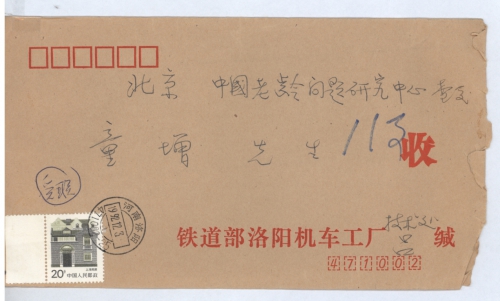 北京 中國老龄问题研究中心 查交
童增 先生 收
113
铁道部洛阳机车工厂 技术处 吕 缄
471002
20分 中国人民邮政